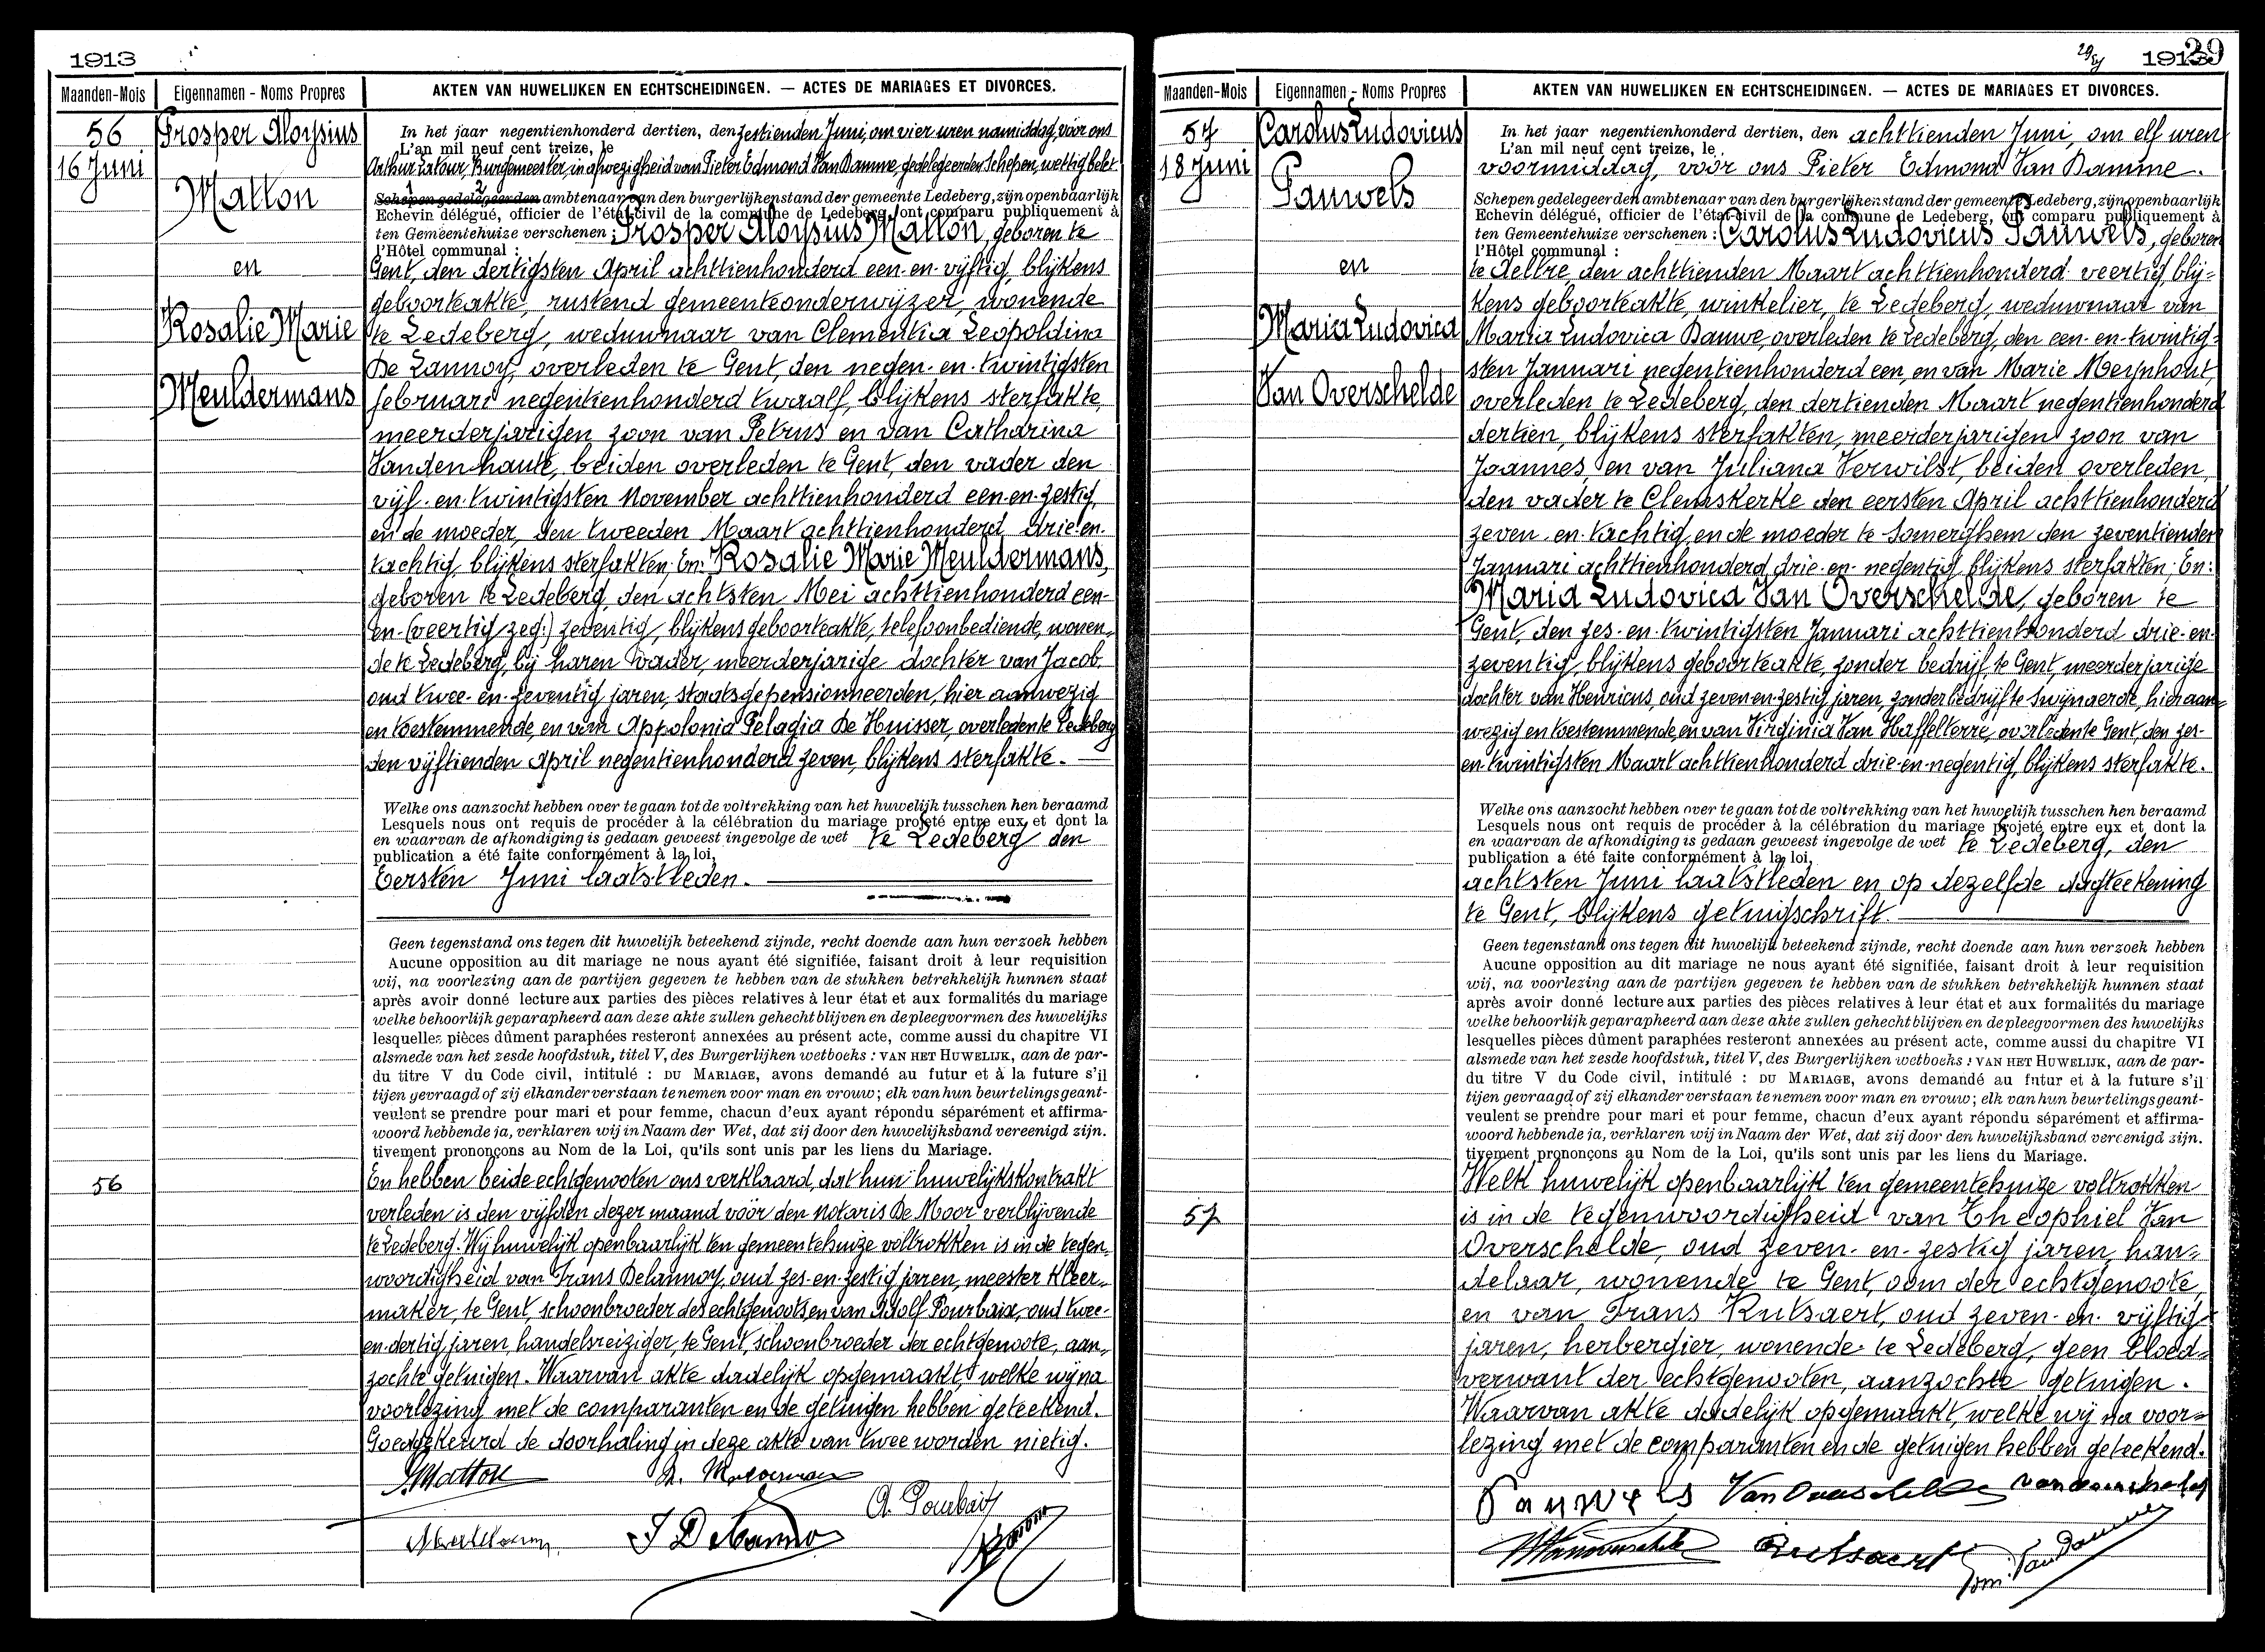 1913
Maanden-Mois
Eigennamen - Noms Propres
AKTEN VAN HUWELIJKEN EN ECHTSCHEIDINGEN. — ACTES DE MARIAGES ET DIVORCES.
56
16 Juni
Prosper Aloysius
Matton
en
Rosalie Marie
Meuldermans
In het jaar negentienhonderd dertien, den zestienden Juni, om vier uren namiddag, vóór ons
L'an mil neuf cent treize, le
Arthur Latour, Burgemeester, in afwezigheid van Pieter Edmond Van Damme, gedelegeerden Schepen, wettig belet
1 2
Schepen gedelegeerden ambtenaar van den burgerlijken stand der gemeente Ledeberg, zijn openbaarlijk
Echevin délégué, officier de l'état civil de la commune de Ledeberg, ont comparu publiquement à
ten Gemeentehuize verschenen : Prosper Aloysius Matton, geboren te
l'Hôtel communal :
Gent, den dertigsten April achttienhonderd een-en-vijftig, blijkens
geboorteakte, rustend gemeenteonderwijzer, wonende
te Ledeberg, weduwnaar van Clementia Leopoldina
De Lannoy, overleden te Gent, den negen-en-twintigsten
februari negentienhonderd twaalf, blijkens sterfakte,
meerderjarigen zoon van Petrus en van Catharina
Vandenhaute, beiden overleden te Gent, den vader den
vijf-en-twintigsten November achttienhonderd een-en-zestig,
en de moeder, den tweeden Maart achttienhonderd drie-en-
tachtig, blijkens sterfakten; En: Rosalie Marie Meuldermans,
geboren te Ledeberg, den achtsten Mei achttienhonderd een-
en-(veertig zeg:) zeventig, blijkens geboorteakte, telefoonbediende, wonen-
de te Ledeberg, bij haren vader, meerderjarige dochter van Jacob,
oud twee-en-zeventig jaren, staatsgepensionneerden, hier aanwezig
en toestemmende, en van Appolonia Pelagia De Huisser, overleden te Ledeberg
den vijftienden April negentienhonderd zeven, blijkens sterfakte.
Welke ons aanzocht hebben over te gaan tot de voltrekking van het huwelijk tusschen hen beraamd
Lesquels nous ont requis de procéder à la célébration du mariage projeté entre eux et dont la
en waarvan de afkondiging is gedaan geweest ingevolge de wet te Ledeberg den
publication a été faite conformément à la loi,
Eersten Juni laatstleden.
Geen tegenstand ons tegen dit huwelijk beteekend zijnde, recht doende aan hun verzoek hebben
Aucune opposition au dit mariage ne nous ayant été signifiée, faisant droit à leur requisition
wij, na voorlezing aan de partijen gegeven te hebben van de stukken betrekkelijk hunnen staat
après avoir donné lecture aux parties des pièces relatives à leur état et aux formalités du mariage
welke behoorlijk geparapheerd aan deze akte zullen gehecht blijven en de pleegvormen des huwelijks
lesquelles pièces dûment paraphées resteront annexées au présent acte, comme aussi du chapitre VI
alsmede van het zesde hoofdstuk, titel V, des Burgerlijken wetboeks : VAN HET HUWELIJK, aan de par-
du titre V du Code civil, intitulé : DU MARIAGE, avons demandé au futur et à la future s'il
tijen gevraagd of zij elkander verstaan te nemen voor man en vrouw ; elk van hun beurtelings geant-
veulent se prendre pour mari et pour femme, chacun d'eux ayant répondu séparément et affirma-
woord hebbende ja, verklaren wij in Naam der Wet, dat zij door den huwelijksband vereenigd zijn.
tivement prononçons au Nom de la Loi, qu'ils sont unis par les liens du Mariage.
56
En hebben beide echtgenooten ons verklaard, dat hun huwelijkskontrakt
verleden is den vijfden dezer maand vóór den notaris De Moor verblijvende
te Ledeberg. Wij huwelijk openbaarlijk ten gemeentehuize voltrokken is in de tegen-
woordigheid van Frans Delannoy, oud zes-en-zestig jaren, meester kleer-
maker, te Gent, schoonbroeder des echtgenoots en van Adolf Pourbaix, oud twee-
en-dertig jaren, handelsreiziger, te Gent, schoonbroeder der echtgenoote, aan-
zochte getuigen. Waarvan akte dadelijk opgemaakt, welke wij na
voorlezing met de comparanten en de getuigen hebben geteekend.
Goedgekeurd de doorhaling in deze akte van twee worden nietig.
Matton
A. Pourbaix
F Delannoy
29
1913
Maanden-Mois
Eigennamen - Noms Propres
AKTEN VAN HUWELIJKEN EN ECHTSCHEIDINGEN. — ACTES DE MARIAGES ET DIVORCES.
57
18 Juni
Carolus Ludovicus
Pauwels
en
Maria Ludovica
Van Overschelde
In het jaar negentienhonderd dertien, den achttienden Juni, om elf uren
L'an mil neuf cent treize, le
voormiddag, vóór ons Pieter Edmond Van Damme.
Schepen gedelegeerden ambtenaar van den burgerlijken stand der gemeente Ledeberg, zijn openbaarlijk
Echevin délégué, officier de l'état civil de la commune de Ledeberg, ont comparu publiquement à
ten Gemeentehuize verschenen : Carolus Ludovicus Pauwels, geboren
l'Hôtel communal :
te Aeltre den achttienden Maart achttienhonderd veertig, blij-
kens geboorteakte, winkelier, te Ledeberg, weduwnaar van
Maria Ludovica Dauwe, overleden te Ledeberg, den een-en-twintig-
sten Januari negentienhonderd een, en van Marie Meynhout,
overleden te Ledeberg, den dertienden Maart negentienhonderd
dertien, blijkens sterfakten, meerderjarigen zoon van
Joannes en van Juliana Verwilst, beiden overleden,
den vader te Clemskerke den eersten April achttienhonderd
zeven-en-tachtig, en de moeder te Somerghem den zeventienden
Januari achttienhonderd drie-en-negentig, blijkens sterfakten; En:
Maria Ludovica Van Overschelde, geboren te
Gent, den zes-en-twintigsten Januari achttienhonderd drie-en-
zeventig, blijkens geboorteakte, zonder bedrijf te Gent, meerderjarige
dochter van Henricus, oud zeven-en-zestig jaren, zonder bedrijf te Swijnaerde, hier aan-
wezig en toestemmende, en van Virginia Van Haffelterre, overleden te Gent, den zes-
en-twintigsten Maart achttienhonderd drie-en-negentig, blijkens sterfakte.
Welke ons aanzocht hebben over te gaan tot de voltrekking van het huwelijk tusschen hen beraamd
Lesquels nous ont requis de procéder à la célébration du mariage projeté entre eux et dont la
en waarvan de afkondiging is gedaan geweest ingevolge de wet te Ledeberg, den
publication a été faite conformément à la loi,
achtsten Juni laatstleden en op dezelfde dagteekening
te Gent, blijkens getuigschrift.
Geen tegenstand ons tegen dit huwelijk beteekend zijnde, recht doende aan hun verzoek hebben
Aucune opposition au dit mariage ne nous ayant été signifiée, faisant droit à leur requisition
wij, na voorlezing aan de partijen gegeven te hebben van de stukken betrekkelijk hunnen staat
après avoir donné lecture aux parties des pièces relatives à leur état et aux formalités du mariage
welke behoorlijk geparapheerd aan deze akte zullen gehecht blijven en de pleegvormen des huwelijks
lesquelles pièces dûment paraphées resteront annexées au présent acte, comme aussi du chapitre VI
alsmede van het zesde hoofdstuk, titel V, des Burgerlijken wetboeks : VAN HET HUWELIJK, aan de par-
du titre V du Code civil, intitulé : DU MARIAGE, avons demandé au futur et à la future s'il
tijen gevraagd of zij elkander verstaan te nemen voor man en vrouw ; elk van hun beurtelings geant-
veulent se prendre pour mari et pour femme, chacun d'eux ayant répondu séparément et affirma-
woord hebbende ja, verklaren wij in Naam der Wet, dat zij door den huwelijksband vereenigd zijn.
tivement prononçons au Nom de la Loi, qu'ils sont unis par les liens du Mariage.
57
Welk huwelijk openbaarlijk ten gemeentehuize voltrokken
is in de tegenwoordigheid van Theophiel Van
Overschelde, oud zeven-en-zestig jaren, han-
delaar, wonende te Gent, oom der echtgenoote,
en van Frans Rutsaert, oud zeven-en-vijftig
jaren, herbergier, wonende te Ledeberg, geen bloed-
verwant der echtgenooten, aanzochte getuigen.
Waarvan akte dadelijk opgemaakt, welke wij na voor-
lezing met de comparanten en de getuigen hebben geteekend.
Pauwels Van Overschelde Vanoverschelde
Vanoverschelde Rutsaert Edm. Van Damme